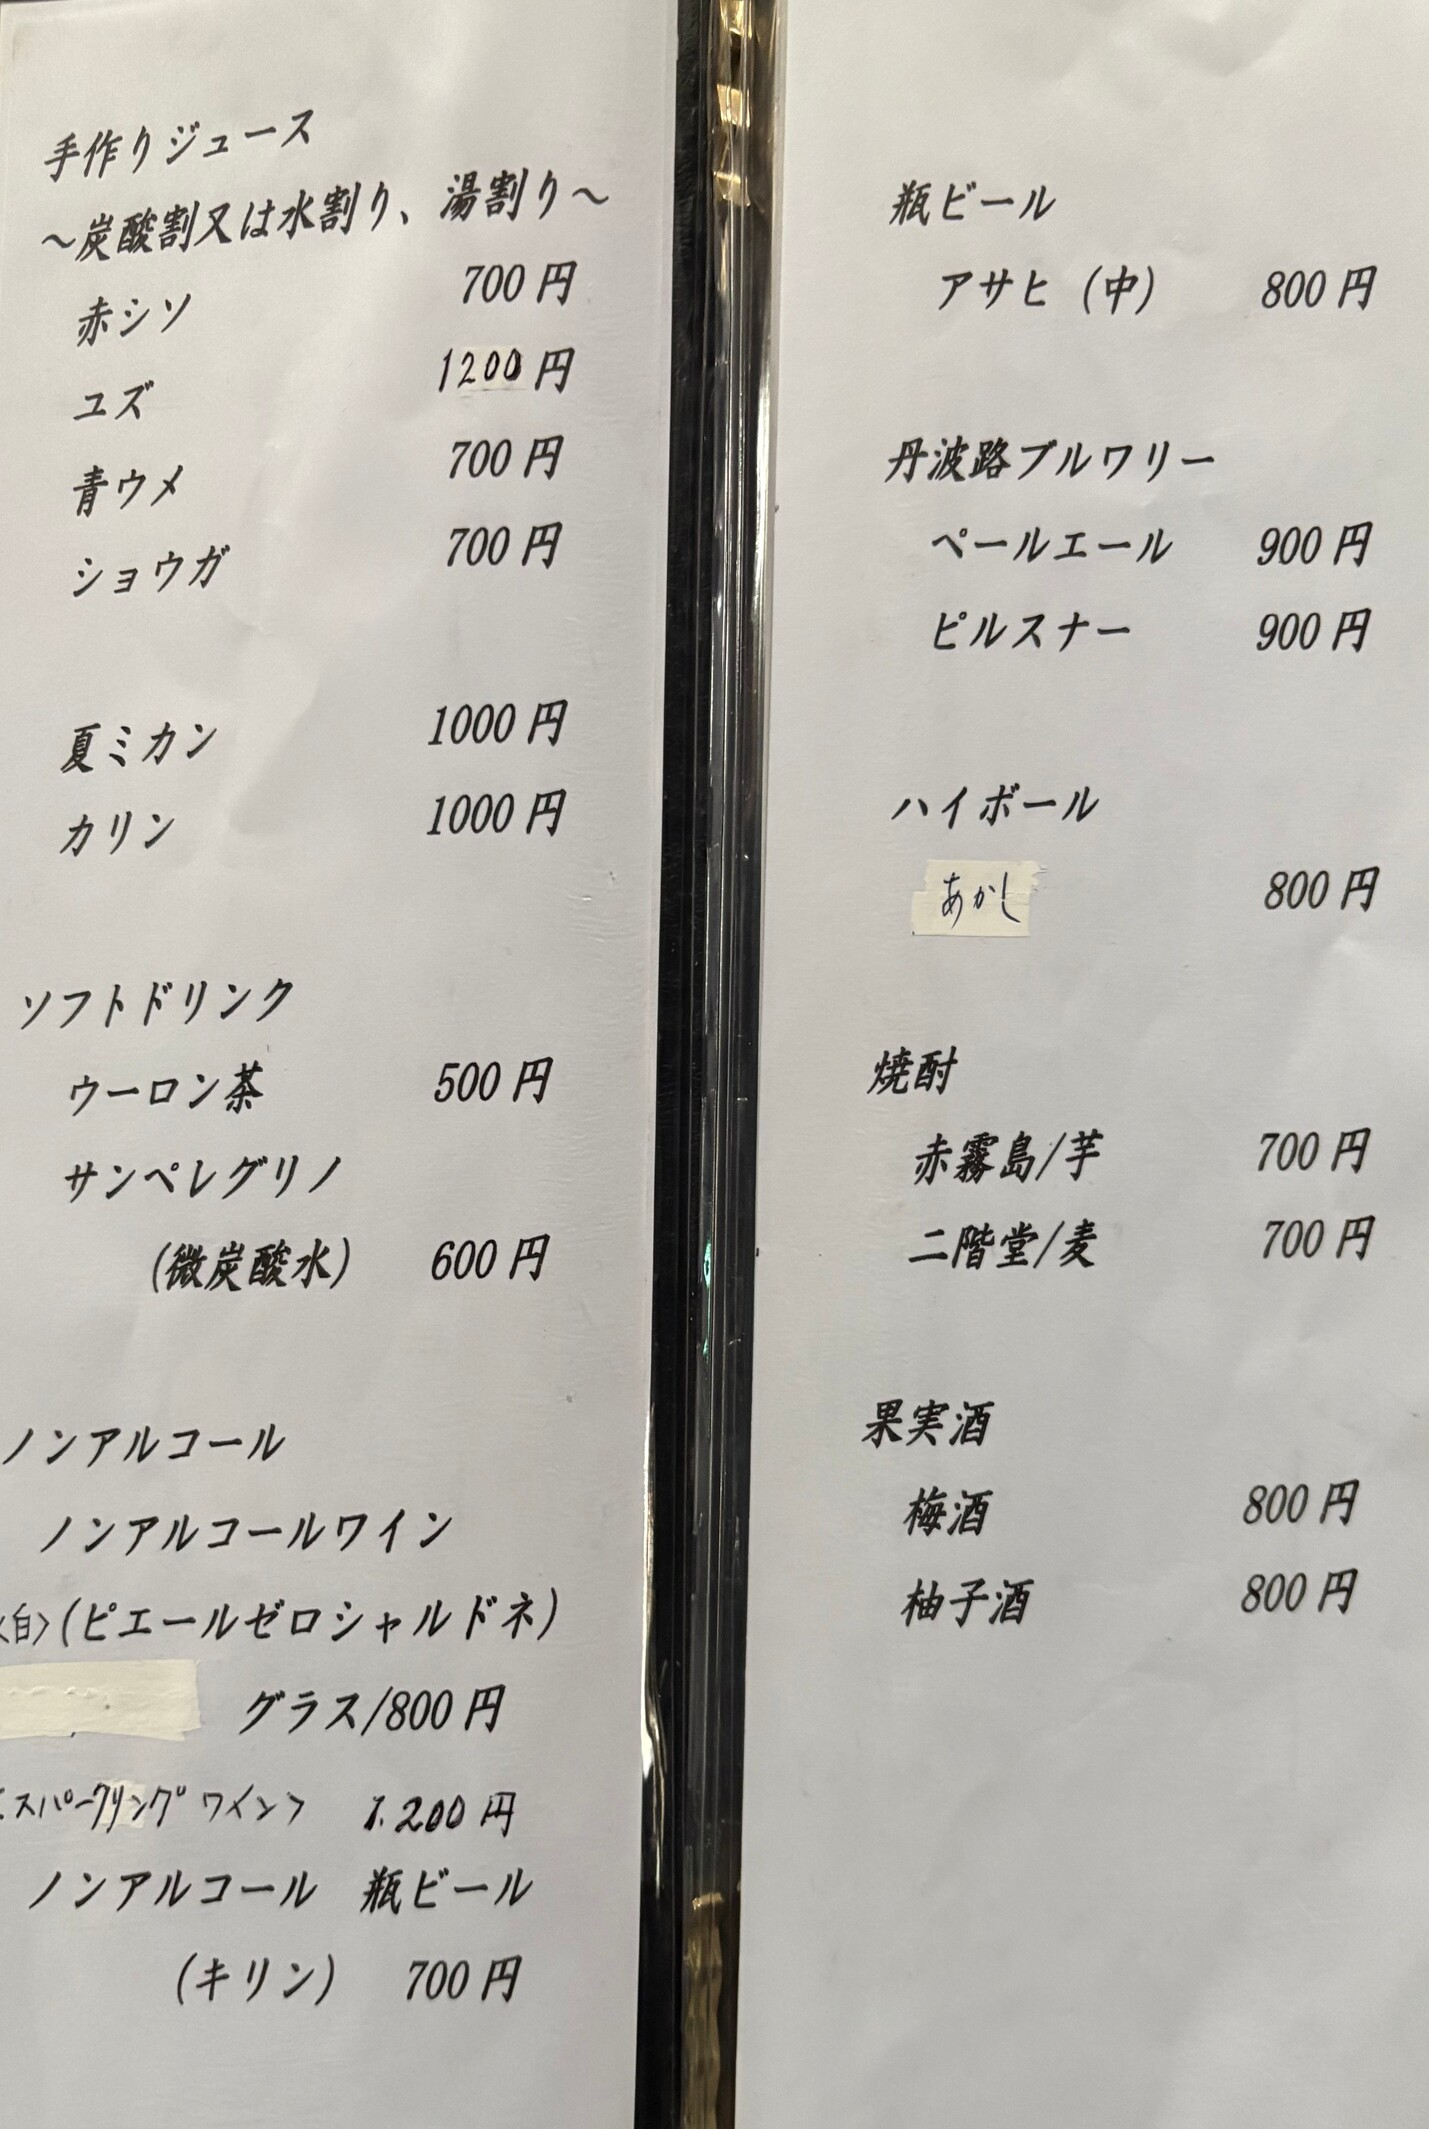 手作りジュース
～炭酸割又は水割り、湯割り～
赤シソ 700円
ユズ 1200円
青ウメ 700円
ショウガ 700円
夏ミカン 1000円
カリン 1000円
ソフトドリンク
ウーロン茶 500円
サンペレグリノ
(微炭酸水) 600円
ノンアルコール
ノンアルコールワイン
<白>(ピエールゼロシャルドネ)
グラス/800円
<スパークリングワイン> 1.200円
ノンアルコール 瓶ビール
(キリン) 700円
瓶ビール
アサヒ (中) 800円
丹波路ブルワリー
ペールエール 900円
ピルスナー 900円
ハイボール
あかし 800円
焼酎
赤霧島/芋 700円
二階堂/麦 700円
果実酒
梅酒 800円
柚子酒 800円